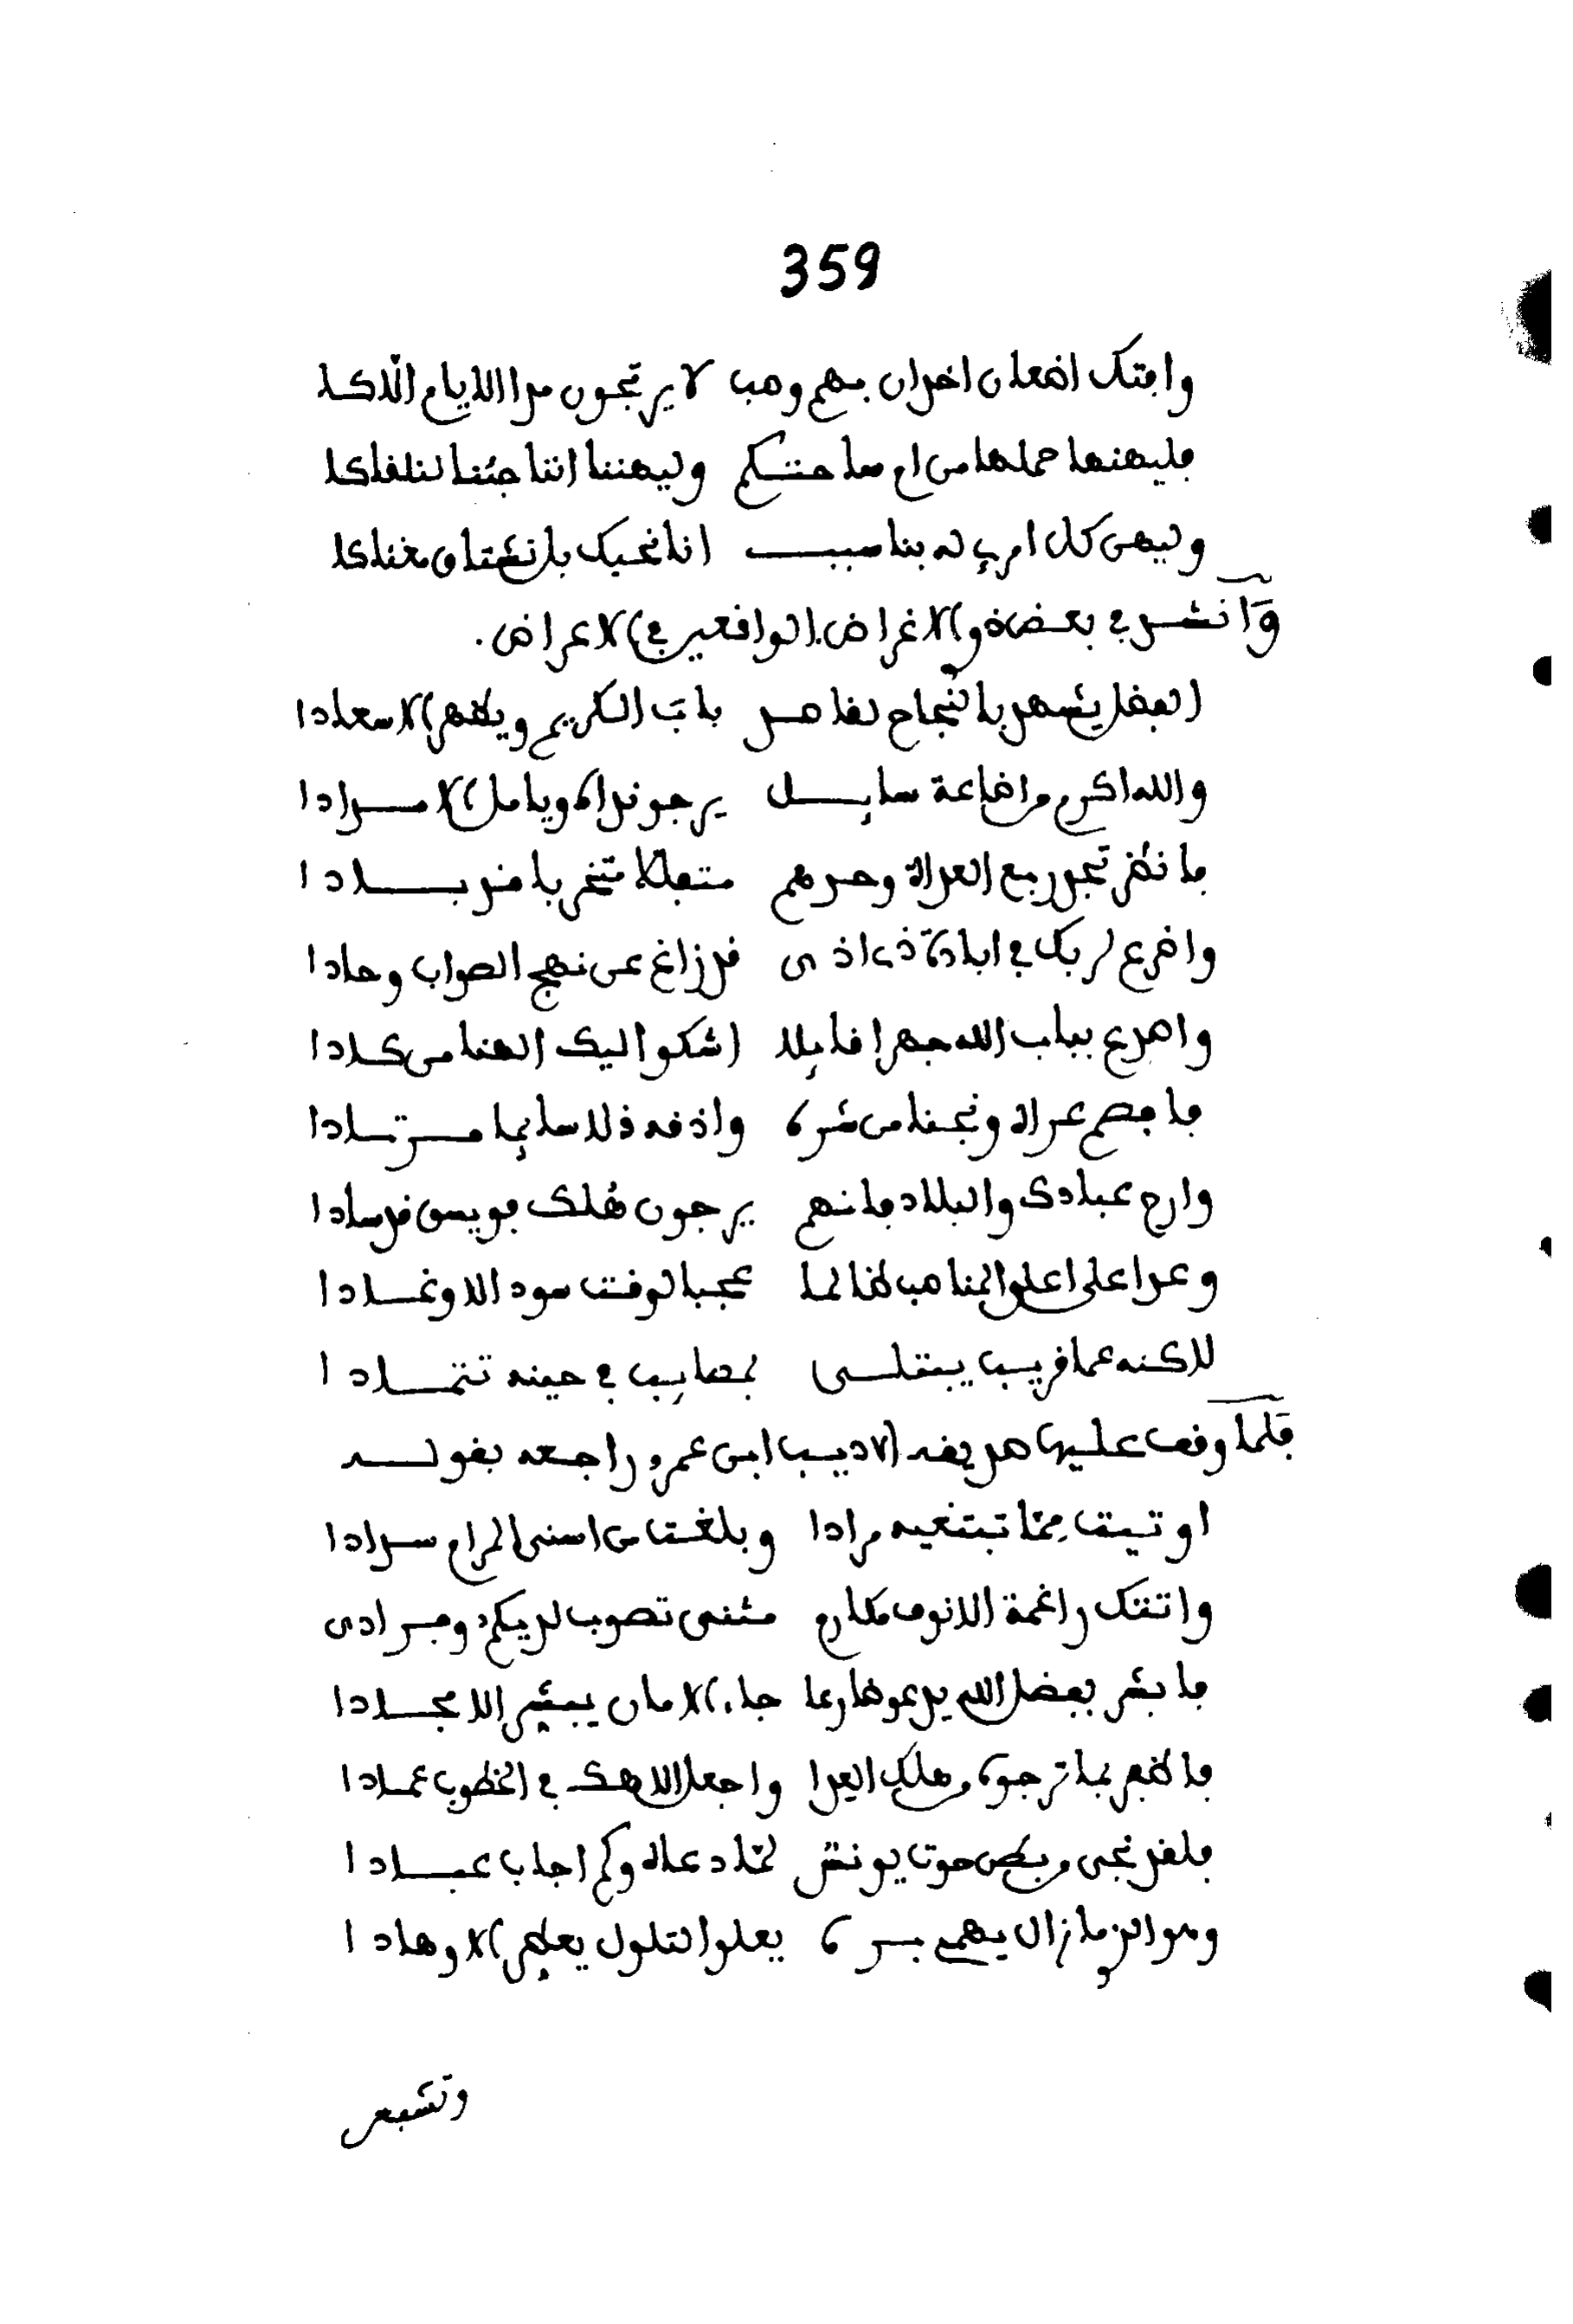 359
وافتك اضعان اخوان بهم وهب لا يرتجون مدا الايام الاكا
فليهنها حملها من ام ساحتكم وليهننا اننا جئنا لنلفاكا
وليهن كل امرئ له بنا سبب انا نحبك بل نشتاق مغناكا
وانشد في بعض ذوي الاغراض الواقعين في الاعراض.
الفضل يشهد بالنجاح لقاصد باب الكريم ويلهم الاسعادا
والله اكرم من اضاعة سايل يرجو نداه ويامل الامدادا
فانهض تجد ربع العداة وحزبهم متفللا متخربا منهادا
واضرع لربك في ابادة ذي اذى قد زاغ عن نهج الصواب وحادا
واهرع بباب الله جهرا قايلا اشكو اليك الهنا من كادا
فافصم عراه ونجنا من شره واذقه ذلا سايما مزتادا
وارح عبادك والبلاد فانهم يرجون هلك فويسق قد سادا
وعدا على اعلى المناصب ظالما عجبا لوقت سود الاوغادا
لاكنه عما قريب يبتلى بمصايب في حينه تتمادا
فلما وقف عليها صديقه الاديب ابن عمرو راجعه بقوله
اوتيت مما تبتغيه مرادا وبلغت من اسنى المرام سدادا
واتتك راغمة الانوف مكارم مثنى تصوب لديكم وفرادى
فابشر بفضل الله يدعو ضارعا جاء الامان يبشر الامجادا
فاظفر بما ترجوه من هلك العدا واجعل الاهك في الخطوب عمادا
فلقد نجى من بطن حوت يونس لما دعاه وكم اجاب عبادا
وهو الذي ما زال يهمع بره يعلو التلول يعلم الاوهادا
وتشبعر